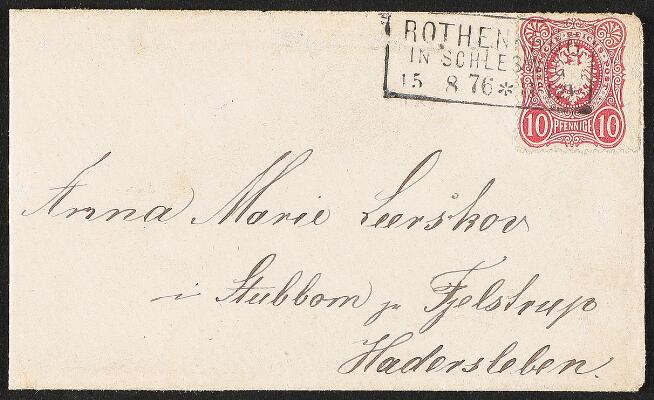 ROTHEN
IN SCHLES
15 8 76 *
10 PFENNIGE 10
Anna Marie Leerskov
i Stubbom pr Fjelstrup
Hadersleben.